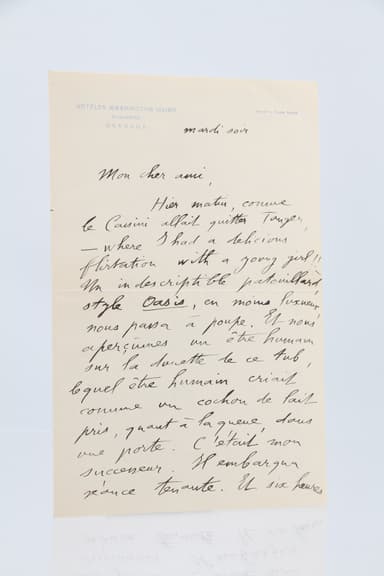 mardi soir
Mon cher ami,
Hier matin, comme
le Cassini allait quitter
— where I had a delicious
flirtation with a young girl!!
Un indescriptible patouillard,
style Oasis, en moins luxueux
nous passa à poupe. Et nous
aperçûmes un être humain
sur la dunette de ce tub,
lequel être humain criait
comme un cochon de lait
pris, quant à la queue, dans
une porte. C'était mon
successeur. Il embarqua
séance tenante. Et six heures